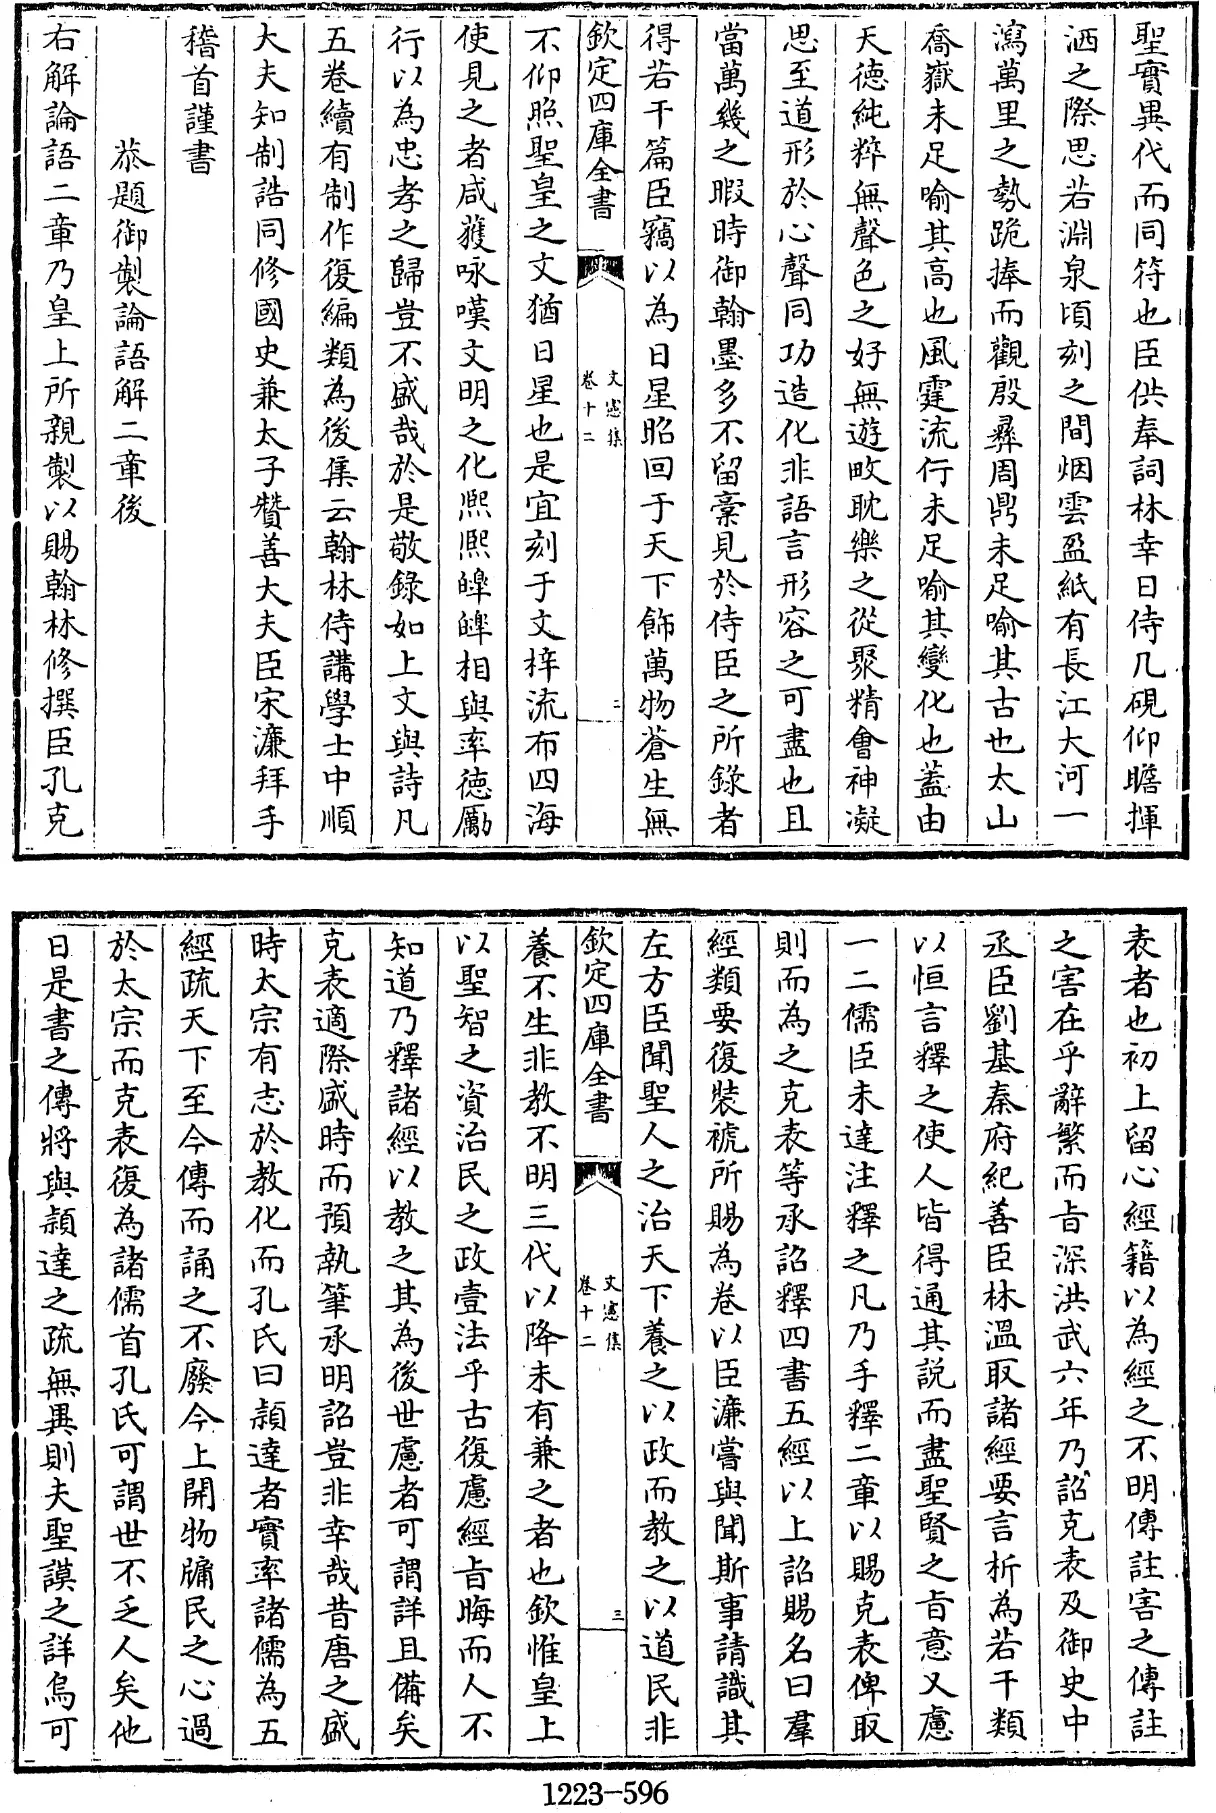 聖實異代而同符也臣供奉詞林幸日侍几硯仰瞻揮
洒之際思若淵泉頃刻之間烟雲盈紙有長江大河一
瀉萬里之勢跪捧而觀殷彛周鼎未足喻其古也太山
喬嶽未足喻其高也風霆流行未足喻其變化也蓋由
天德純粹無聲色之好無遊畋耽樂之從聚精會神凝
思至道形於心聲同功造化非語言形容之可盡也且
當萬幾之暇時御翰墨多不留稾見於侍臣之所錄者
得若干篇臣竊以為日星昭回于天下飾萬物蒼生無
欽定四庫全書
文憲集
卷十二
二
不仰照聖皇之文猶日星也是宜刻于文梓流布四海
使見之者咸獲咏嘆文明之化熈熈皥皥相與率德厲
行以為忠孝之歸豈不盛哉於是敬錄如上文與詩凡
五卷續有制作復編類為後集云翰林侍講學士中順
大夫知制誥同修國史兼太子贊善大夫臣宋濂拜手
稽首謹書
恭題御製論語解二章後
右解論語二章乃皇上所親製以賜翰林修撰臣孔克
表者也初上留心經籍以為經之不明傳註害之傳註
之害在乎辭繁而旨深洪武六年乃詔克表及御史中
丞臣劉基秦府紀善臣林溫取諸經要言析為若干類
以恒言釋之使人皆得通其說而盡聖賢之旨意又慮
一二儒臣未達注釋之凡乃手釋二章以賜克表俾取
則而為之克表等承詔釋四書五經以上詔賜名曰羣
經類要復裝褫所賜為卷以臣濂嘗與聞斯事請識其
左方臣聞聖人之治天下養之以政而教之以道民非
欽定四庫全書
文憲集
卷十二
三
養不生非教不明三代以降未有兼之者也欽惟皇上
以聖智之資治民之政壹法乎古復慮經旨晦而人不
知道乃釋諸經以教之其為後世慮者可謂詳且備矣
克表適際盛時而預執筆承明詔豈非幸哉昔唐之盛
時太宗有志於教化而孔氏曰頴達者實率諸儒為五
經疏天下至今傳而誦之不廢今上開物牖民之心過
於太宗而克表復為諸儒首孔氏可謂世不乏人矣他
日是書之傳將與頴達之疏無異則夫聖謨之詳烏可
1223-596